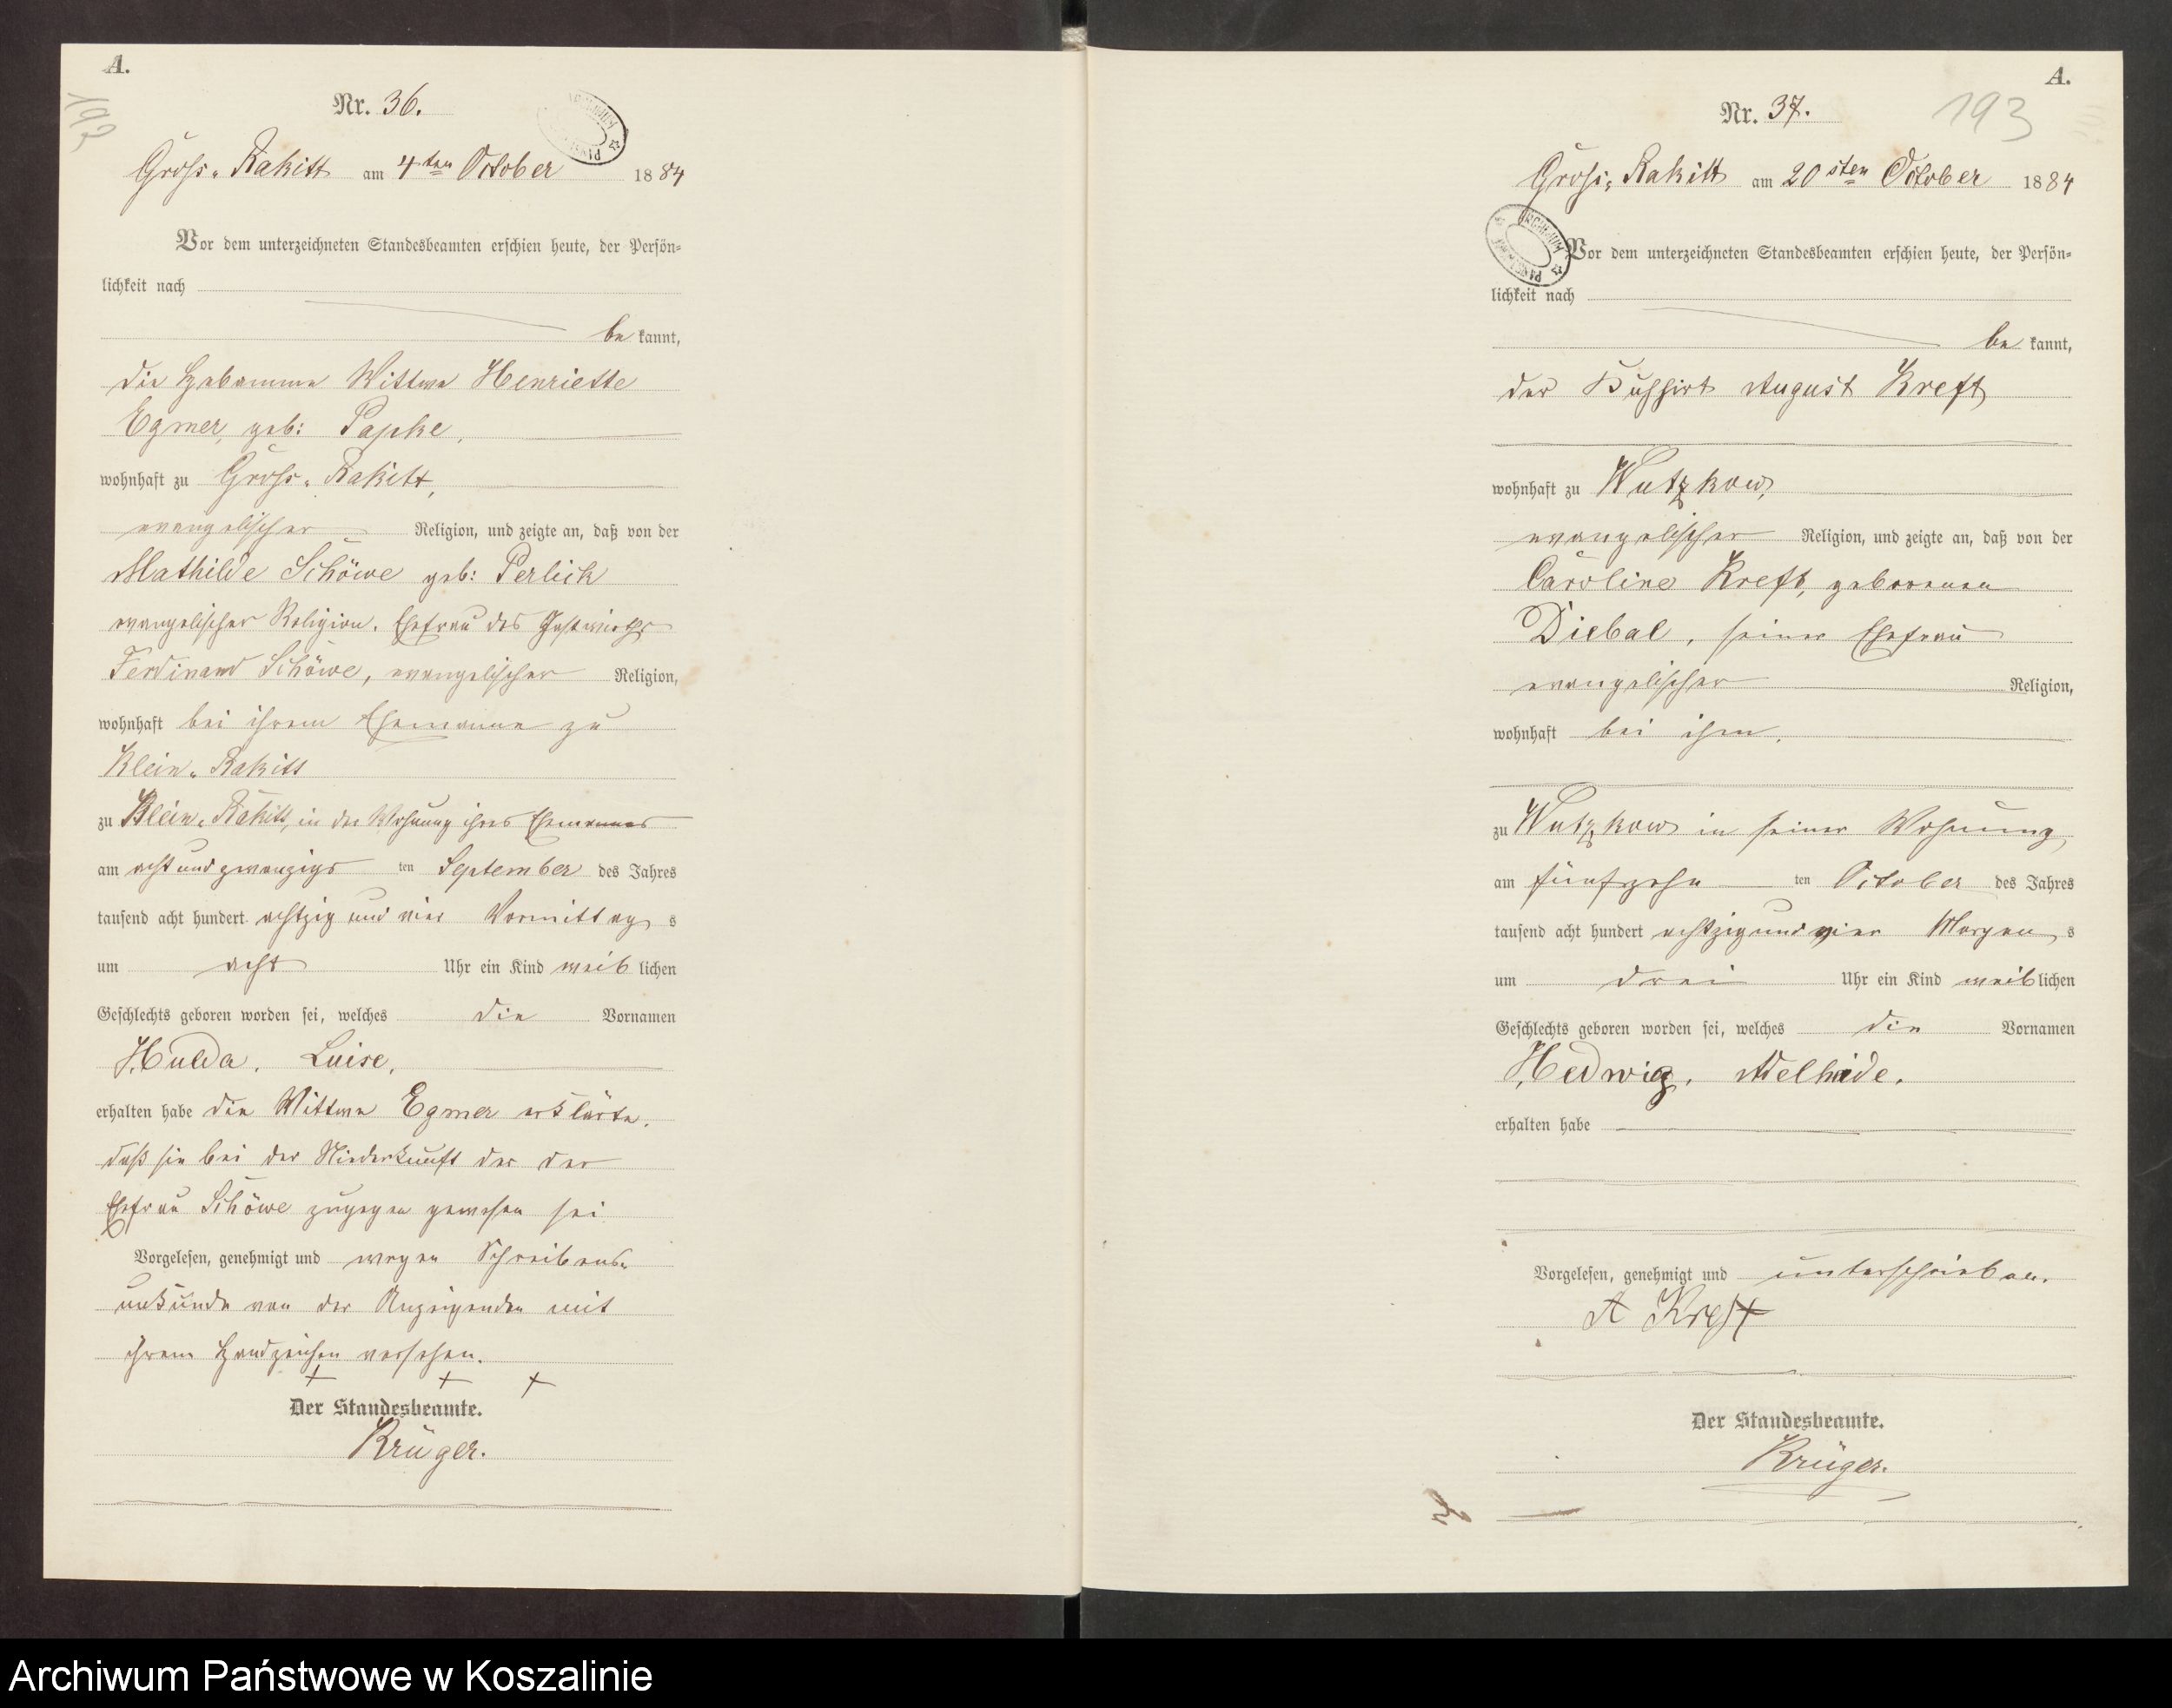 A.
193
Nr. 36.
Gross-Rakitt am 4ten October 1884
Vor dem unterzeichneten Standesbeamten erschien heute, der Persön-
lichkeit nach
bekannt,
die Hebamme Wittwe Henriette
Egmer, geb: Papke,
wohnhaft zu Gross-Rakitt,
evangelischer Religion, und zeigte an, daß von der
Mathilde Schöwe geb: Perlick
evangelischer Religion, Ehefrau des Gastwirths
Ferdinand Schöwe, evangelischer Religion,
wohnhaft bei ihrem Ehemanne zu
Klein-Rakitt
zu Klein-Rakitt, in der Wohnung ihres Ehemannes
am acht und zwanzigs ten September des Jahres
tausend acht hundert achtzig und vier Vormittags
um acht Uhr ein Kind weiblichen
Geschlechts geboren worden sei, welches die Vornamen
Hulda, Luise,
erhalten habe die Wittwe Egmer erklärte,
daß sie bei der Niederkunft der der
Ehefrau Schöwe zugegen gewesen sei
Vorgelesen, genehmigt und wegen Schreibens-
unkunde von der Anzeigenden mit
ihrem Handzeichen versehen.
+ + +
Der Standesbeamte.
Krüger.
A.
193
Nr. 37.
Gross-Rakitt am 20sten October 1884
Vor dem unterzeichneten Standesbeamten erschien heute, der Persön-
lichkeit nach
bekannt,
der Kuhhirt August Kreft
wohnhaft zu Wutzkow,
evangelischer Religion, und zeigte an, daß von der
Caroline Kreft, geborenen
Diebal, seiner Ehefrau
evangelischer Religion,
wohnhaft bei ihm,
zu Wutzkow in seiner Wohnung
am fünfzehn ten October des Jahres
tausend acht hundert achtzig und vier Morgens
um drei Uhr ein Kind weiblichen
Geschlechts geboren worden sei, welches die Vornamen
Hedwig, Adelheide.
erhalten habe
Vorgelesen, genehmigt und unterschrieben.
A Kreft
Der Standesbeamte.
Krüger.
Archiwum Państwowe w Koszalinie